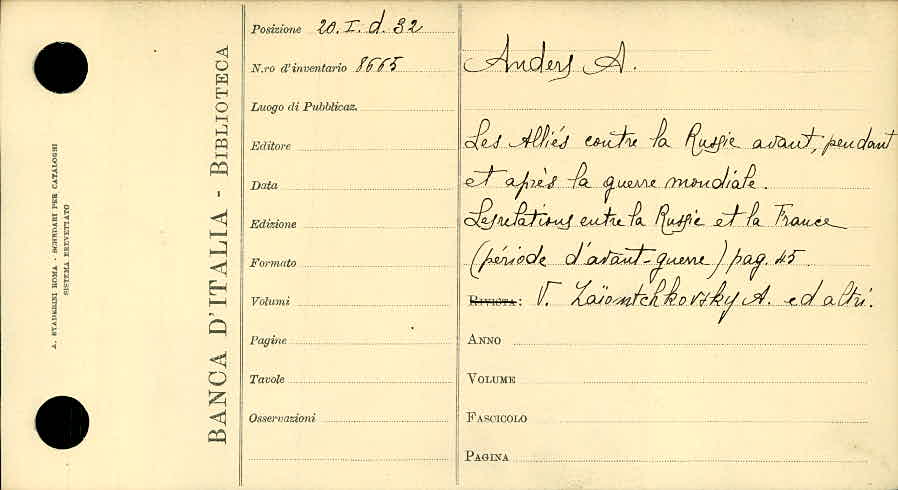 A. STADERINI ROMA - SCHEDARI PER CATALOGHI
SISTEMA BREVETTATO
BANCA D'ITALIA - BIBLIOTECA
Posizione 20. I. d. 32
N.ro d'inventario 8665
Luogo di Pubblicaz.
Editore
Data
Edizione
Formato
Volumi
Pagine
Tavole
Osservazioni
Anders A.
Les Alliés contre la Russie avant, pendant
et après la guerre mondiale.
Les relations entre la Russie et la France
(période d'avant-guerre) pag. 45
RIVISTA: V. Zaïontchkovsky A. ed altri.
ANNO
VOLUME
FASCICOLO
PAGINA